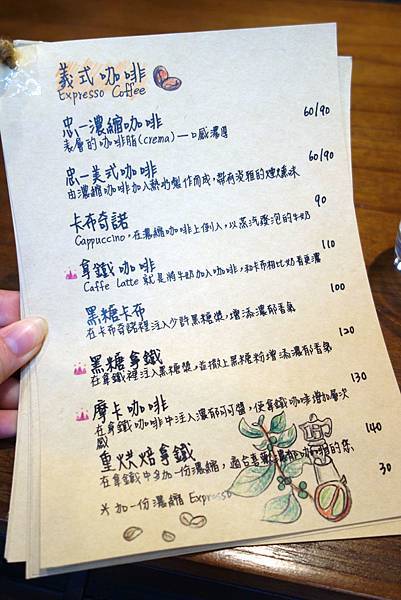 義式咖啡
Expresso Coffee
忠一濃縮咖啡 60/90
表層的咖啡脂(crema)一口感濃厚
忠一美式咖啡 60/90
由濃縮咖啡加入熱水製作而成,帶有淡雅的煙燻味
卡布奇諾 90
Cappuccino,在濃縮咖啡上倒入,以蒸汽發泡的牛奶
拿鐵咖啡 110
Caffe Latte 就是將牛奶加入咖啡,和卡布相比奶香更濃
黑糖卡布 100
在卡布奇諾裡注入少許黑糖漿,增添濃郁香氣
黑糖拿鐵 120
在拿鐵裡注入黑糖漿,並撒上黑糖粉增添濃郁香氣
摩卡咖啡 130
在拿鐵咖啡中注入濃郁可可醬,使拿鐵咖啡增加層次
感
重烘焙拿鐵 140
在拿鐵中多加一份濃縮,適合喜歡濃郁咖啡的您
※ 加一份濃縮 Expresso 30